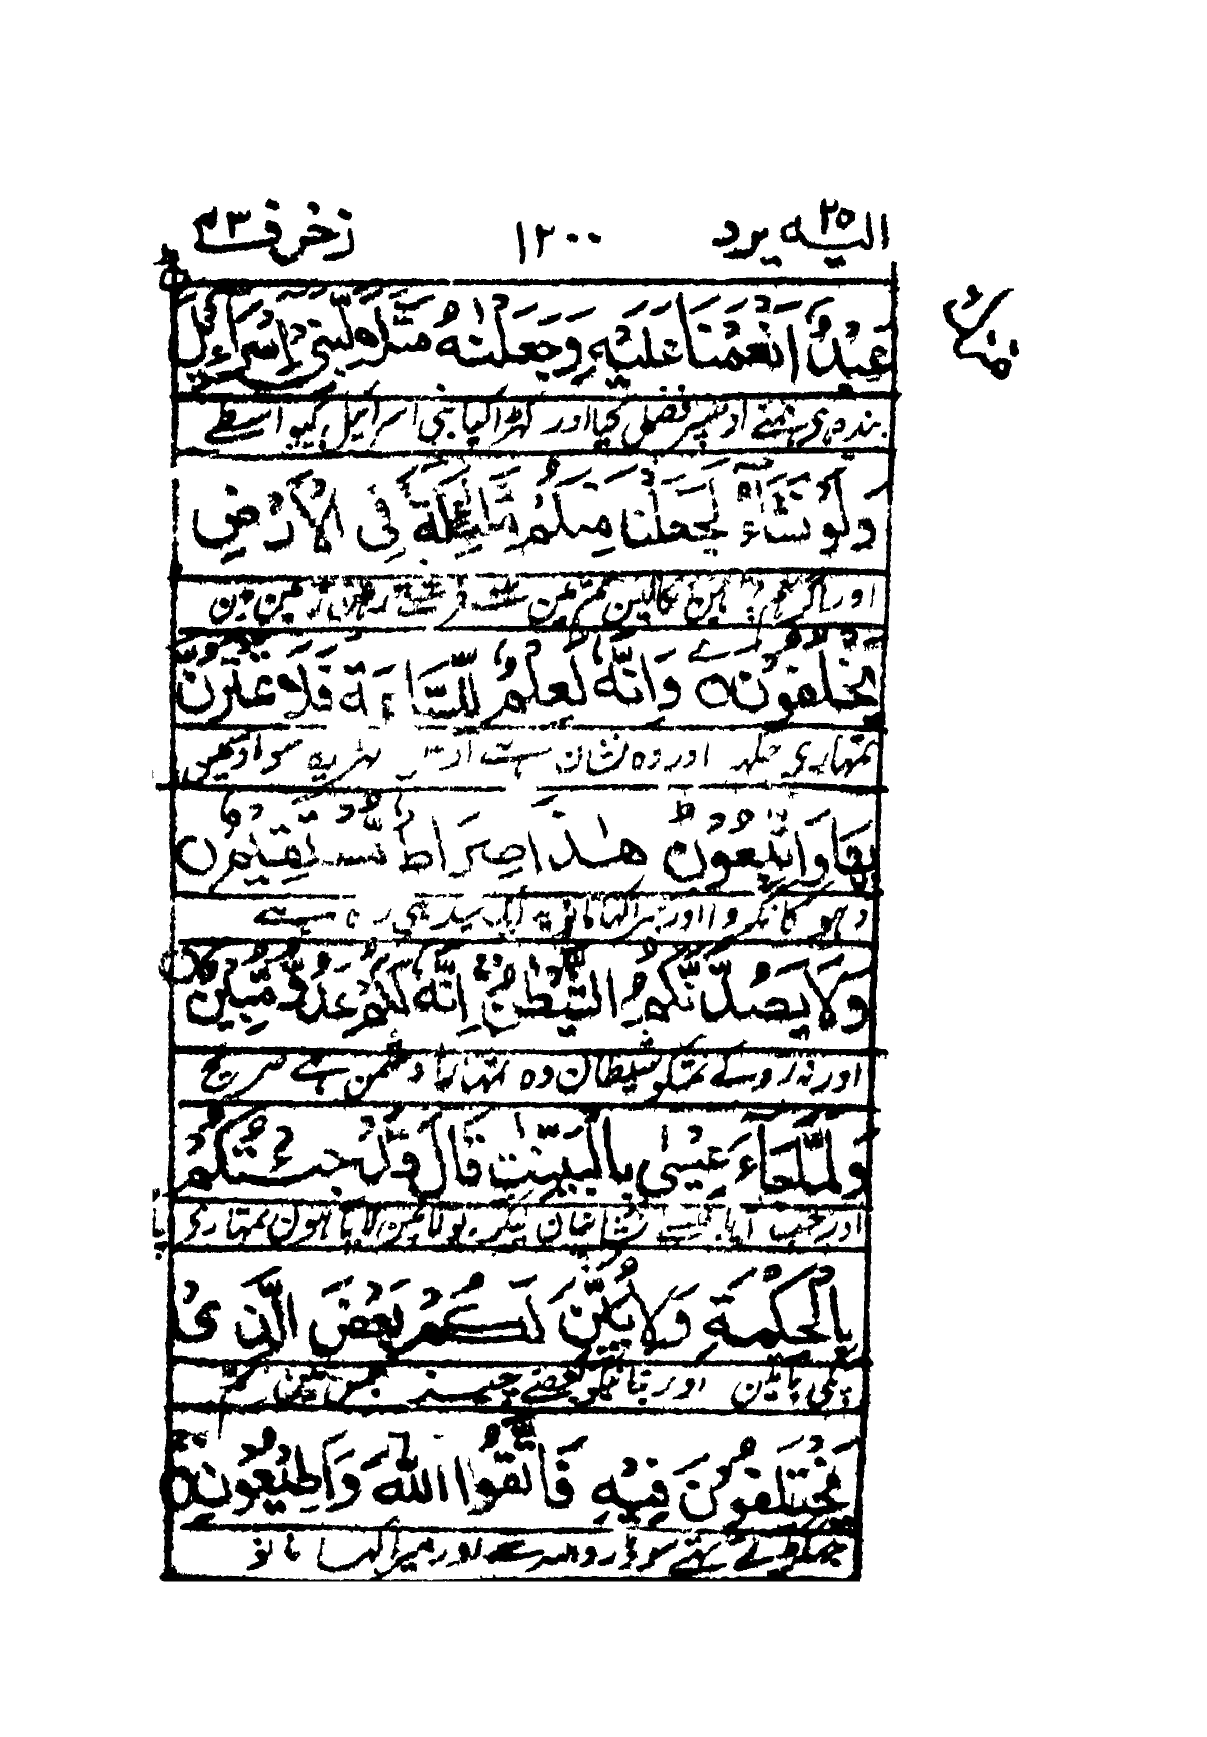 الیه یرد ۲۵ ۱۲۰۰ زخرف ۴۳
عَبْدٌ اَنْعَمْنَا عَلَیْهِ وَجَعَلْنٰهُ مَثَلًا لِّبَنِیْٓ اِسْرَآءِیْلَ
بندہ ہی ہمنے اوسپر فضل کیا اور کھڑا کیا بنی اسرائیل کیواسطے
وَلَوْ نَشَآءُ لَجَعَلْنَا مِنْكُمْ مَّلٰٓئِكَةً فِی الْاَرْضِ
اور اگر ہم چاہین نکالین تم مین سے فرشتے رہین زمین مین
یَّخْلُفُوْنَ وَاِنَّهٗ لَعِلْمٌ لِّلسَّاعَةِ فَلَا تَمْتَرُنَّ
تمہاری جگہہ اور وہ نشان ہے
بِهَا وَاتَّبِعُوْنِ هٰذَا صِرَاطٌ مُّسْتَقِیْمٌ
اور میرا کہا مانو یہ ایک سیدہی راہ ہے
وَلَا یَصُدَّنَّكُمُ الشَّیْطٰنُ اِنَّهٗ لَكُمْ عَدُوٌّ مُّبِیْنٌ
اور نہ روکے تمکو شیطان وہ تمہارا دشمن ہے صریح
وَلَمَّا جَآءَ عِیْسٰی بِالْبَیِّنٰتِ قَالَ قَدْ جِئْتُكُمْ
اور جب آیا عیسے نشانیان لیکر بولا مین لایا ہون تمہاری پا
بِالْحِكْمَةِ وَلِاُبَیِّنَ لَكُمْ بَعْضَ الَّذِیْ
پکی باتین اور بتانیکو بعضے چیز جس مین تم
تَخْتَلِفُوْنَ فِیْهِ فَاتَّقُوا اللّٰهَ وَاَطِیْعُوْنِ
جھگڑتے تھے سو ڈرو اللہ سے اور میرا کہا مانو